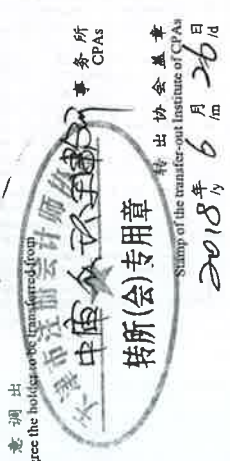 意调出
ree the holder to be transferred from
天津市注册会计师协
事务所
CPAs
转所(会)专用章
转出协会盖章
Stamp of the transfer-out Institute of CPAs
2018年6月26日
/y /m /d